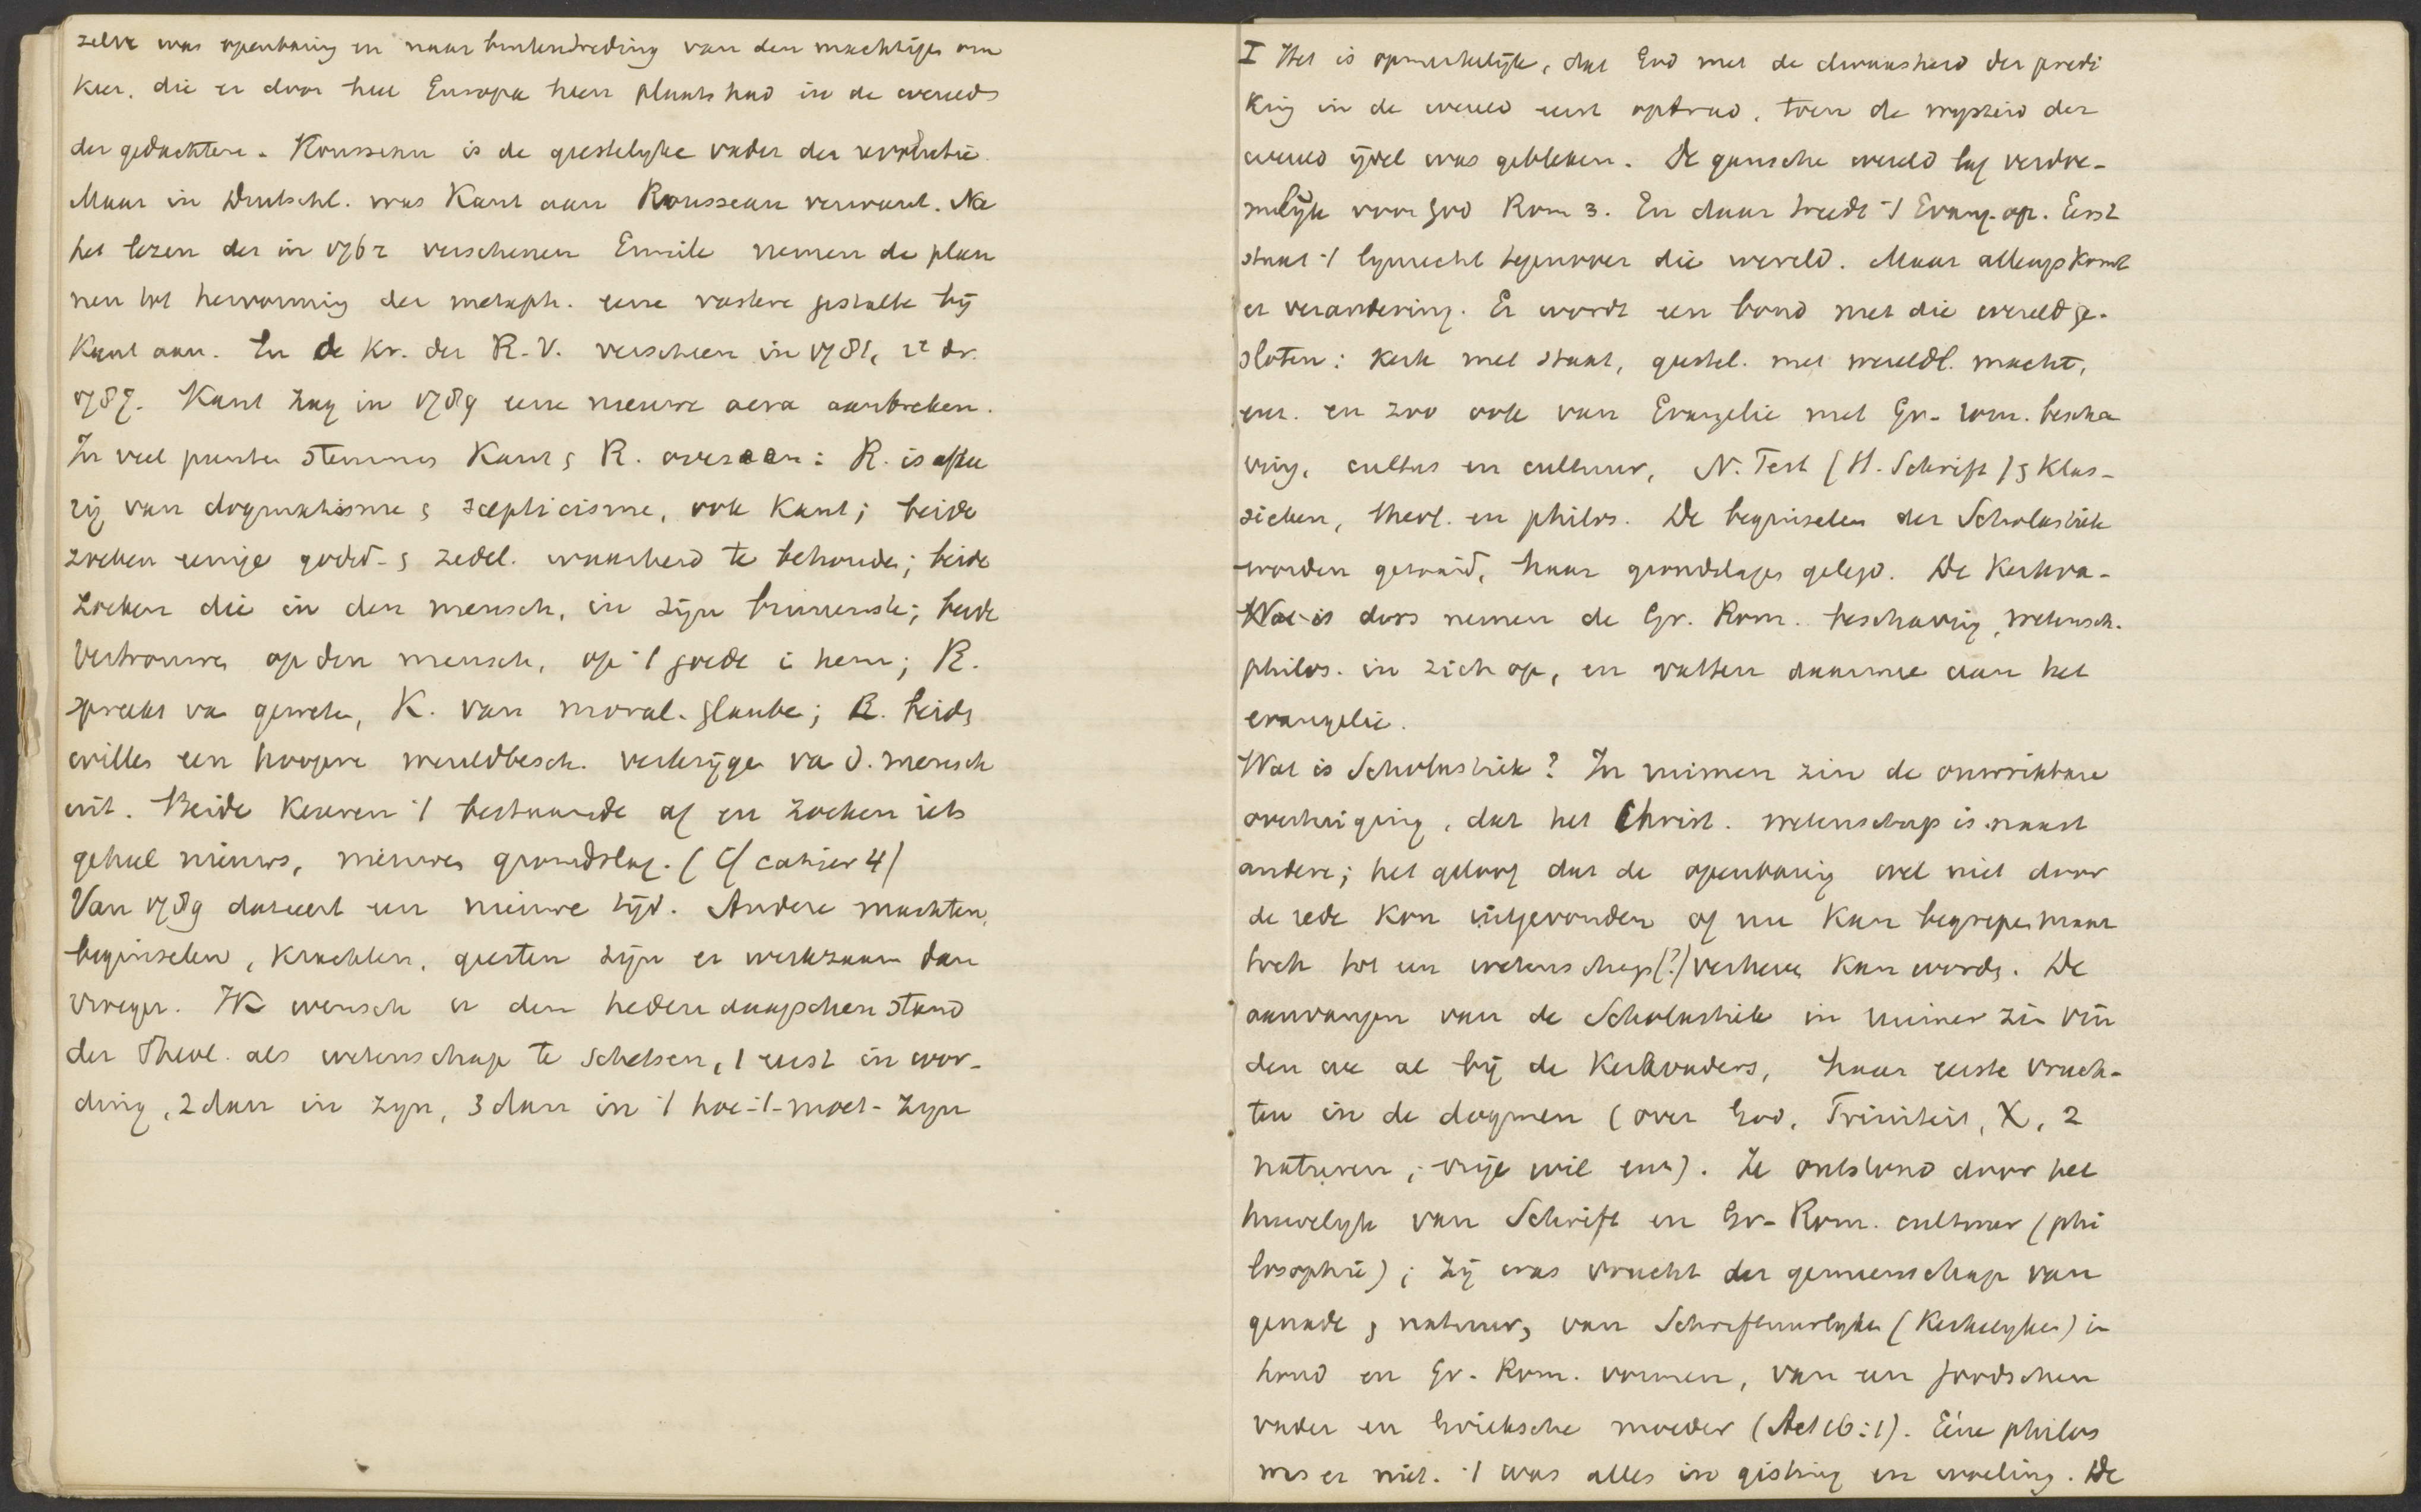 zelve was openbaring en naar buitentreding van den machtigen om
keer, die er door heel Europa heen plaats had in de wereld
der gedachten. Rousseau is de geestelyke vader der revolutie.
Maar in Duitschl. was Kant aan Rousseau verwant. Na
het lezen der in 1762 verschenen Emile nemen de plan
nen tot hervorming der metaph. eene vastere gestalte bij
Kant aan. En de Kr. der R.V. verscheen in 1781, 2e dr.
1787. Kant zag in 1789 eene nieuwe aera aanbreken.
In veel punten stemmen Kant & R. overeen: R. is afkee
rig van dogmatisme & scepticisme, ook Kant; beide
zoeken eenige godsd- & zedel. waarheid te behouden; beide
zoeken die in den mensch, in zijn binnenste; beide
vertrouwen op den mensch, op 't goede i hem; R.
spreekt va geweten, K. van moral. glaube; R. beide
willen een hoogere wereldbesch. verkrijgen va d. mensch
uit. Beide keuren 't bestaande af en zoeken iets
geheel nieuws, nieuwen grondslag. (Cf cahier 4)
Van 1789 dateert een nieuwe tijd. Andere machten,
beginselen, krachten, geesten zijn er werkzaam dan
vroeger. Ik wensch u den hedendaagschen stand
der Theol. als wetenschap te schetsen, 1 eerst in wor-
ding, 2 dan in zyn, 3 dan in 't hoe-'t-moet-zyn
I Het is opmerkelijk, dat God met de dwaasheid der predi
king in de wereld eerst optrad, toen de wysheid der
wereld ijdel was gebleken. De gansche wereld lag verdoe-
melijk voor God Rom 3. En daar treedt 't Evang. op. Eerst
staat 't lynrecht tegenover die wereld. Maar allengs komt
er verandering. Er wordt een bond met die wereld ge-
sloten: kerk met staat, geestel. met wereldl. macht,
enz. en zoo ook van Evangelie met Gr.-rom. bescha
ving, cultus en cultuur, N. Test (H. Schrift) & Klas-
sieken, theol. en philos. De beginselen der Scholastiek
worden gezaaid, haar grondslagen gelegd. De Kerkva-
Wat is ders nemen de Gr. Rom. beschaving, wetensch.
philos. in zich op, en vatten daarmee aan het
evangelie.
Wat is Scholastiek? In ruimen zin de onwrikbare
overtuiging, dat het Christ. wetenschap is naast
andere; het geloof dat de openbaring wel niet door
de rede kon uitgevonden of nu kan begrepen maar
toch tot een wetenschap(?) verheven kan worden. De
aanvangen van de Scholastiek in ruimer zin vin
den we al bij de Kerkvaders, haar eerste vruch-
ten in de dogmen (over God, Triniteit, X, 2
naturen, vrije wil enz). Ze ontstond door het
huwelijk van Schrift en Gr-Rom. cultuur (phi
losophie); zij was vrucht der gemeenschap van
genade & natuur, van Schriftuurlyken (Kerkelyken) in
houd en Gr. Rom. vormen, van een Joodschen
vader en Grieksche moeder (Act 16:1). Eéne philos
was er niet. 't was alles in gisting en woeling. De